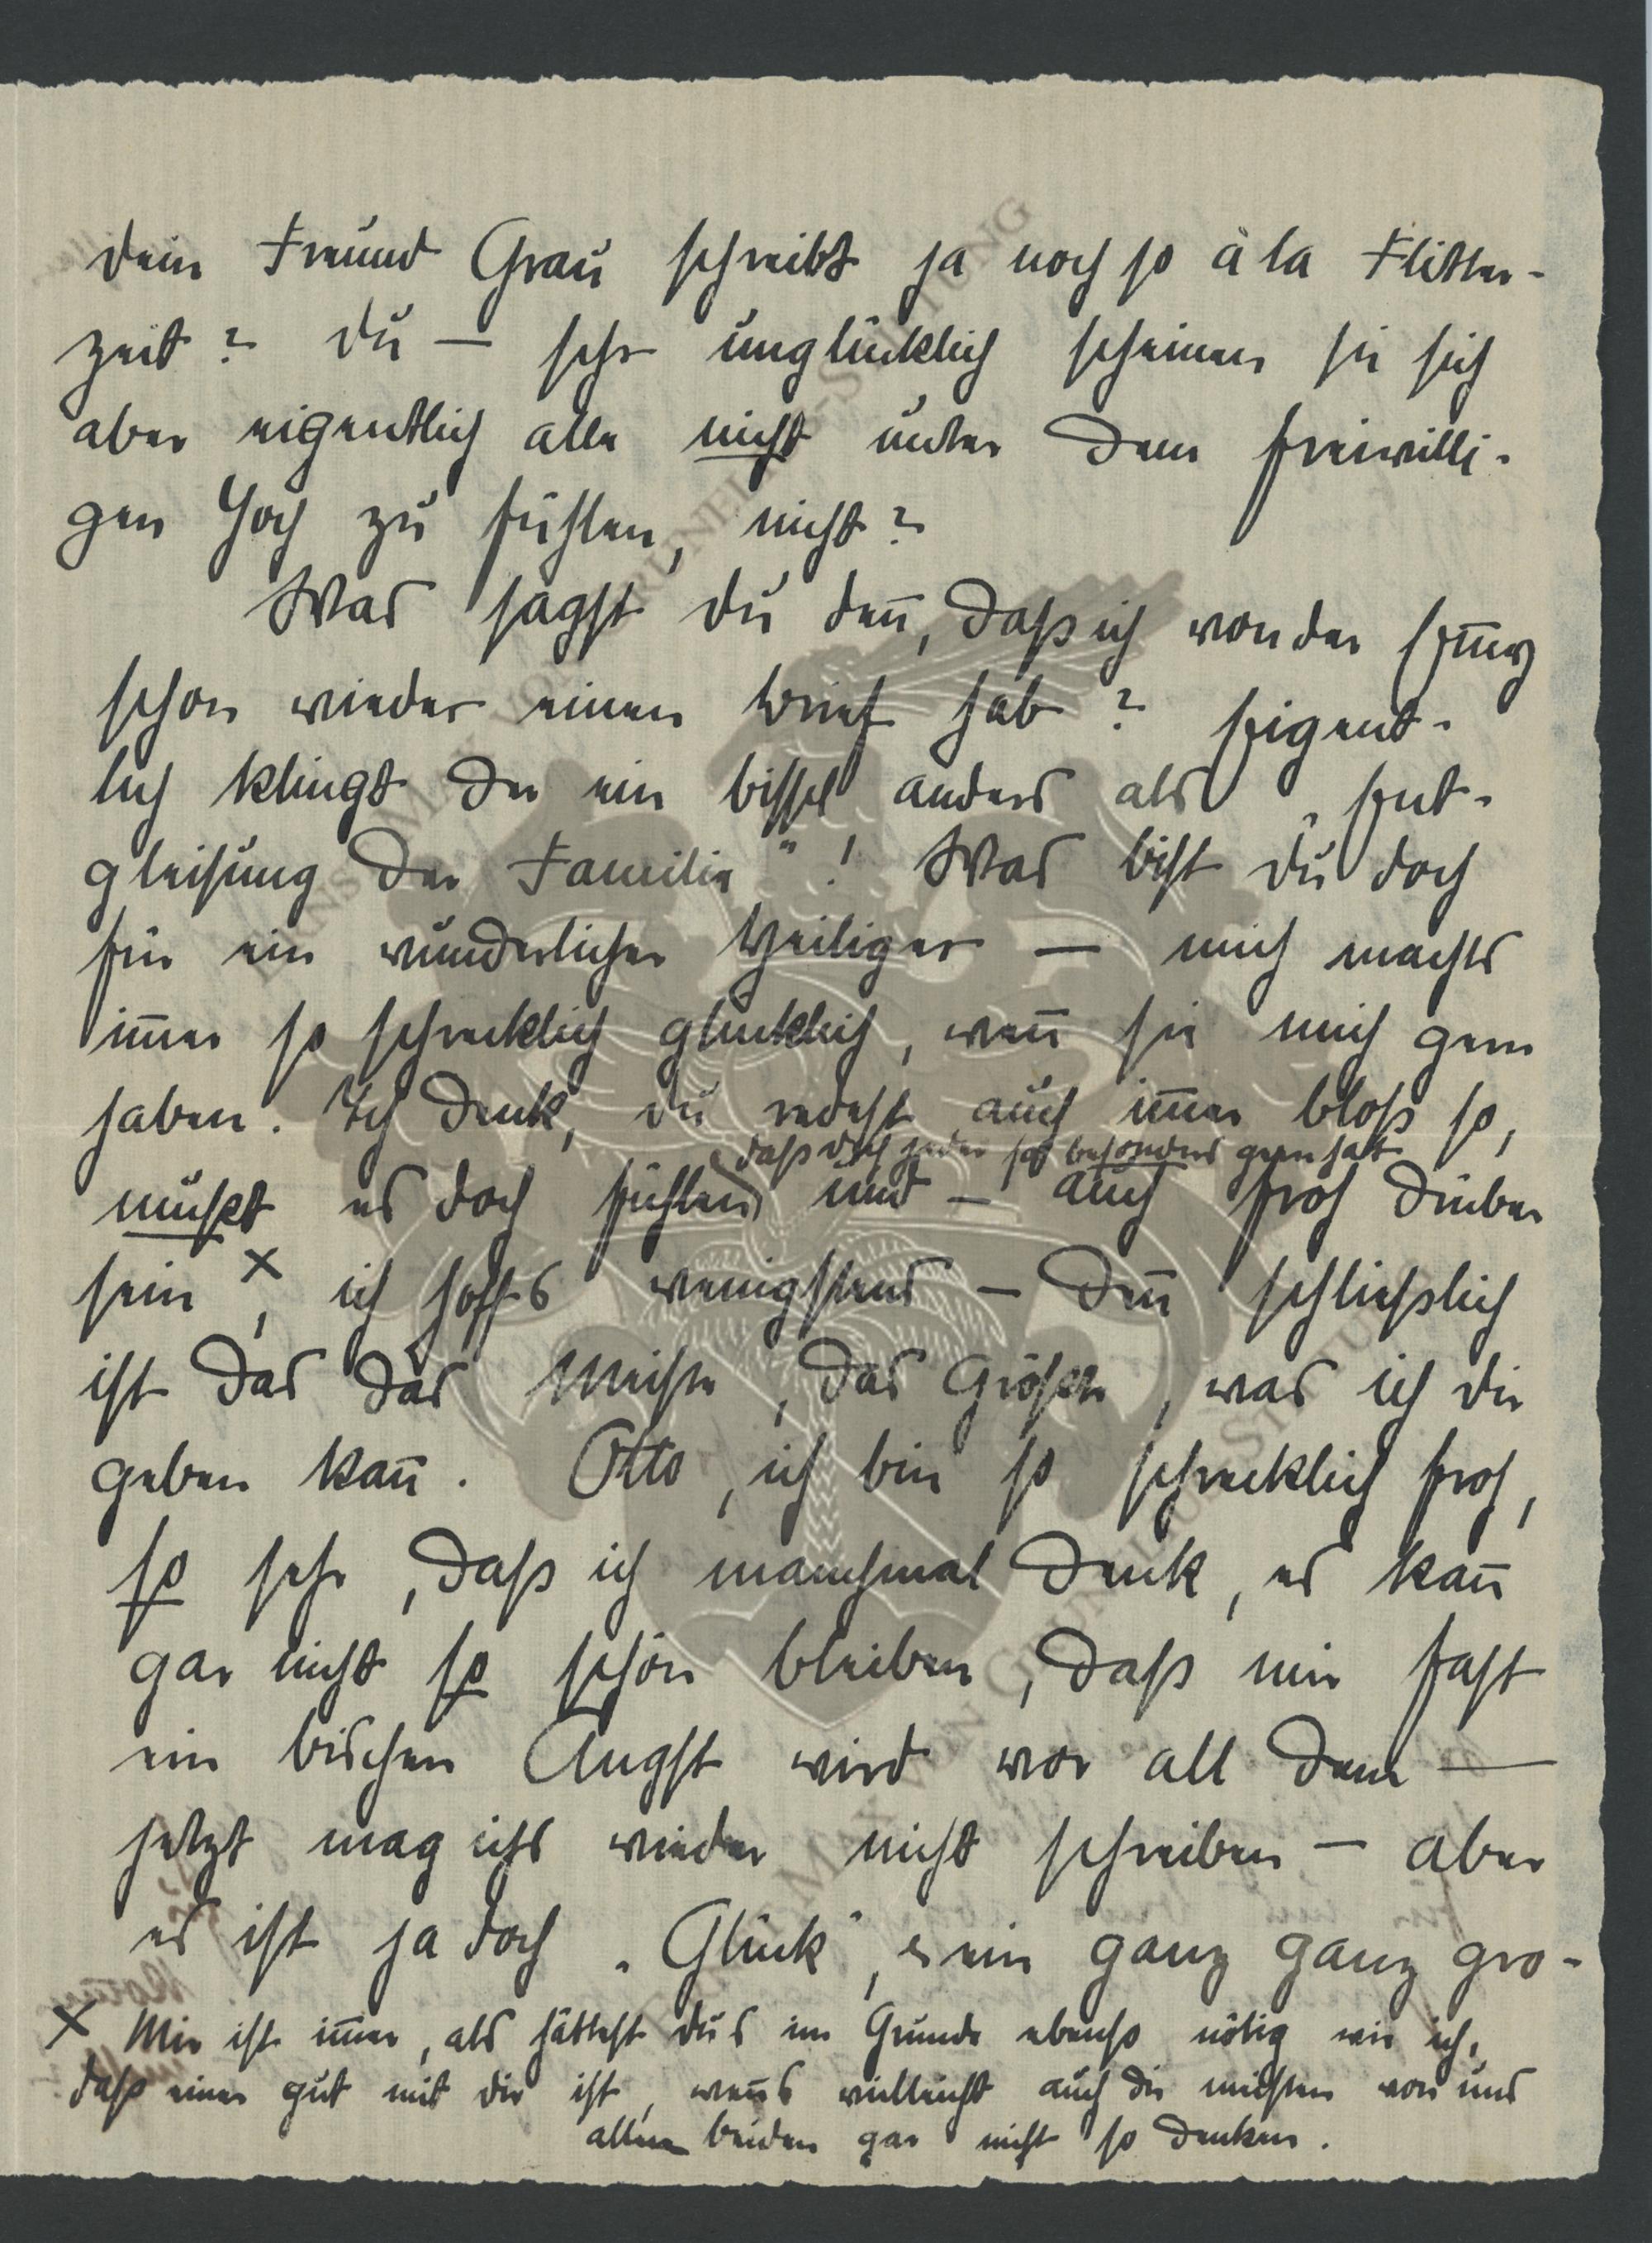 dein Freund Grau schreibt ja noch so à la Flitter-
zeit? Du — sehr unglücklich scheinen sie sich
aber eigentlich alle nicht unter dem freiwilli-
gen Joch zu fühlen, nicht?
Was sagst du den̄, daß ich von der Em̄y
schon wieder einen Brief hab? Eigent-
lich klingt der ein bissel anders als „Ent-
gleisung der Familie"! Was bist du doch
für ein wunderlicher Heiliger — mich machts
im̄er so schrecklich glücklich, wen̄ sie mich gern
haben. Ich denk, du redest auch im̄er bloß so,
daß dich jeder so besonders gern hat
mußt es doch fühlen und — auch froh drüber
sein ×, ich hoffs wenigstens — den̄ schließlich
ist das das Meiste, das Größte, was ich dir
geben kan̄. Otto, ich bin so schrecklich froh,
so sehr, daß ich manchmal denk, es kan̄
gar nicht so schön bleiben, daß mir fast
ein bischen Angst wird vor all dem —
jetzt mag ichs wieder nicht schreiben — aber
es ist ja doch „Glück", ein ganz ganz gro-
× Mir ist im̄er, als hättest dus im Grunde ebenso nötig wie ich,
daß einer gut mit dir ist, wen̄s vielleicht auch die meisten von uns
allen beiden gar nicht so denken.
HANS MAX VON GRUNELIUS-STIFTUNG
HANS MAX VON GRUNELIUS-STIFTUNG